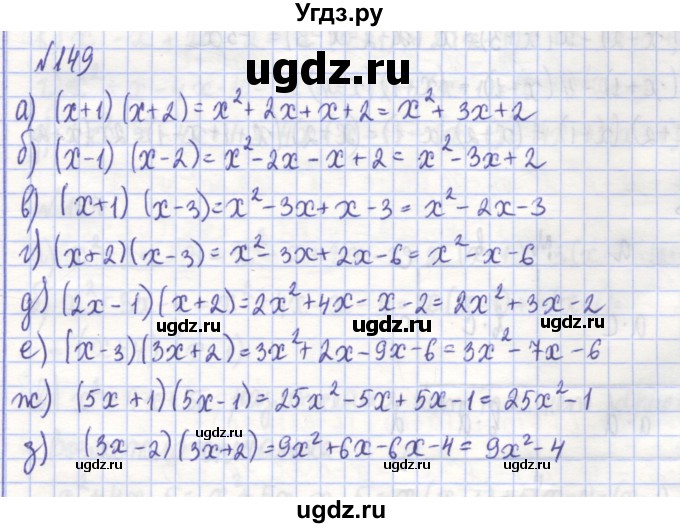 Угдз.ру
№149
ugdz.ru
а) (x+1)(x+2) = x²+2x+x+2 = x²+3x+2
б) (x-1)(x-2) = x²-2x-x+2 = x²-3x+2
в) (x+1)(x-3) = x²-3x+x-3 = x²-2x-3
г) (x+2)(x-3) = x²-3x+2x-6 = x²-x-6
д) (2x-1)(x+2) = 2x²+4x-x-2 = 2x²+3x-2
ugdz.ru
ugdz.ru
е) (x-3)(3x+2) = 3x²+2x-9x-6 = 3x²-7x-6
ugdz.ru
ж) (5x+1)(5x-1) = 25x²-5x+5x-1 = 25x²-1
ugdz.ru
з) (3x-2)(3x+2) = 9x²+6x-6x-4 = 9x²-4
ugdz.ru
ugdz.ru
ugdz.ru
ugdz.ru